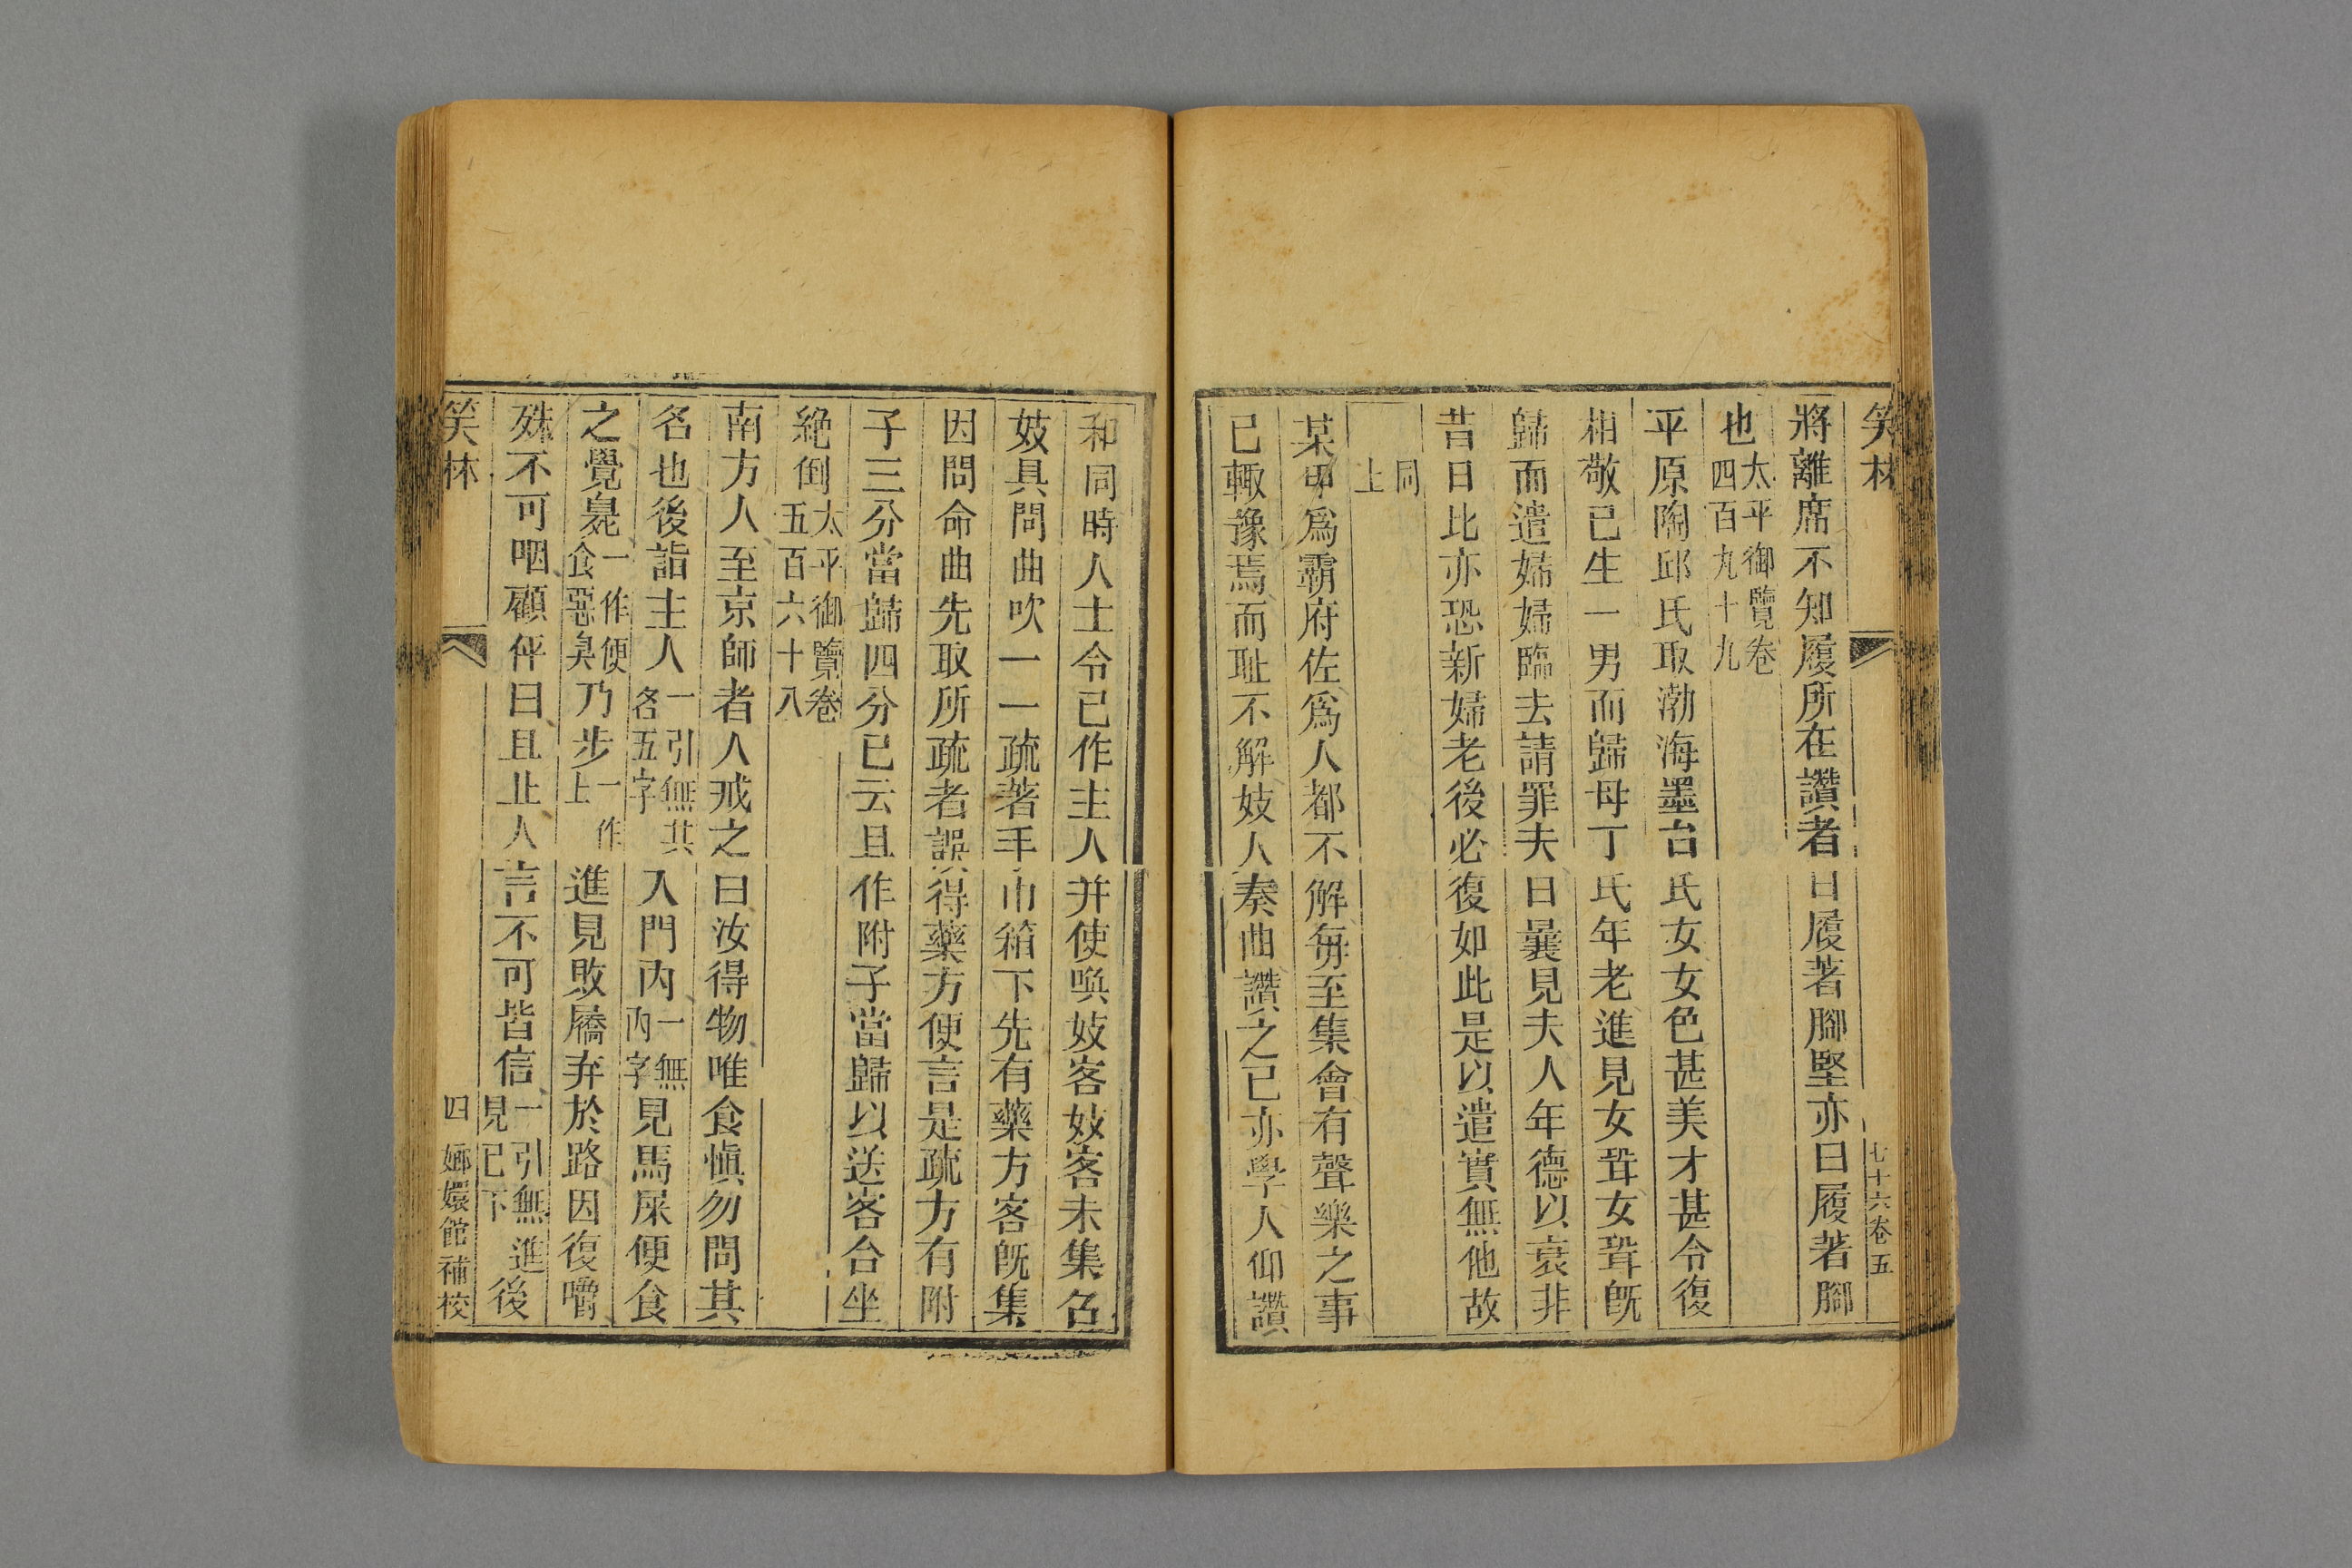 笑林 七十六卷五
將離席不知履所在讚者曰履著腳堅亦曰履著腳
也太平御覽卷四百九十九
平原陶邱氏取渤海墨台氏女女色甚美才甚令復
相敬已生一男而歸母丁氏年老進見女壻女壻既
歸而遣婦婦臨去請罪夫曰曩見夫人年德以衰非
昔日比亦恐新婦老後必復如此是以遣實無他故
同上
某甲爲霸府佐爲人都不解每至集會有聲樂之事
已輙豫焉而耻不解妓人奏曲讚之已亦學人仰讚
和同時人士令已作主人并使喚妓客妓客未集召
妓具問曲吹一一疏著手巾箱下先有藥方客既集
因問命曲先取所疏者誤得藥方便言是疏方有附
子三分當歸四分已云且作附子當歸以送客合坐
絶倒太平御覽卷五百六十八
南方人至京師者人戒之曰汝得物唯食愼勿問其
名也後詣主人一引無其名五字入門內一無內字見馬屎便食
之覺臭一作便食惡臭乃步一作上進見敗屩弃於路因復嚼
殊不可咽顧伴曰且止人言不可皆信一引無進見已下後
笑林 四 嫏嬛館補校